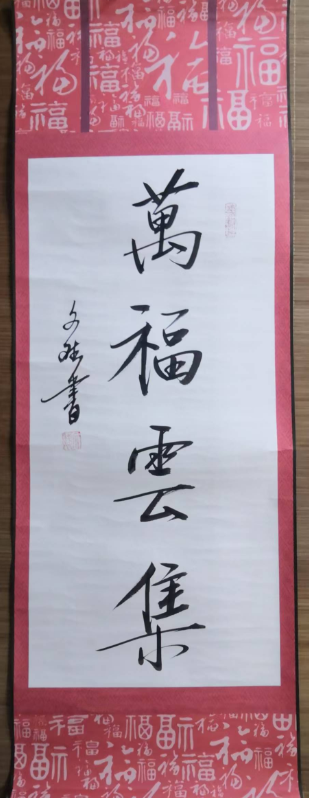 萬福雲集
書